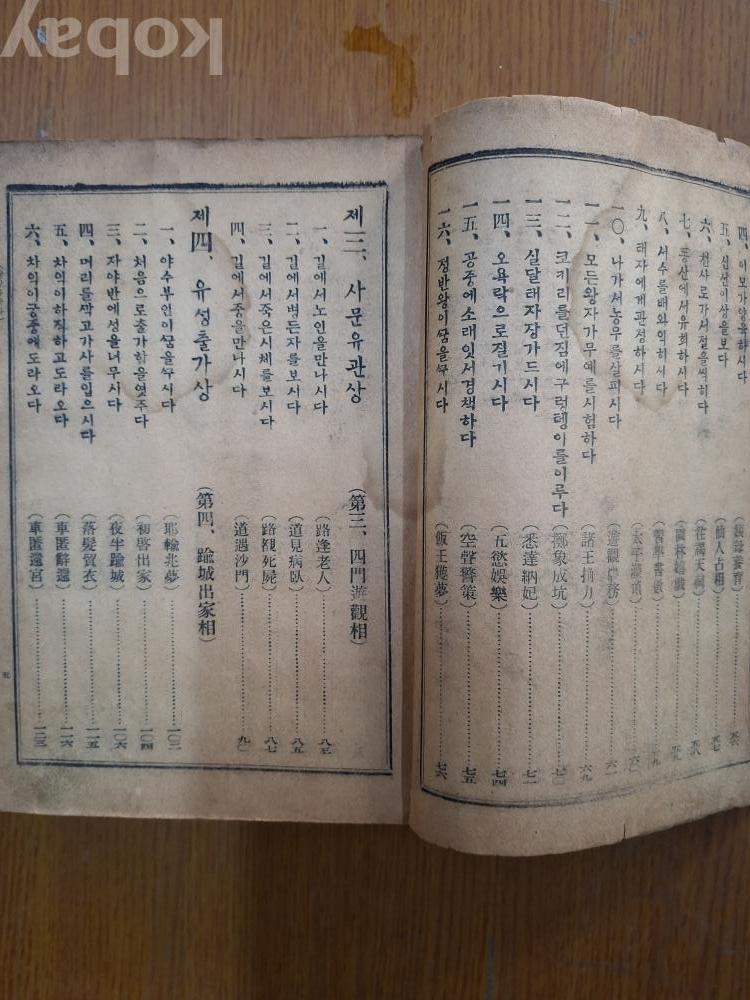 kobay
四、이모가양육하시다
五、신선이상을보다
六、천사로가서절을씩히다
七、동산에서유희하시다 (園林嬉戲)
八、서수를배와익히시다 (習學書數)
九、태자에게관정하시다 (太子灌頂)
一〇、나가서농무를살피시다 (遊觀農務) 六一
一一、모든왕자가무예를시험하다 (諸王捔力) 六九
一二、코끼리를던짐에구렁텡이를이루다 (擲象成坑) 七〇
一三、실달태자장가드시다 (悉達納妃) 七一
一四、오욕락으로즐기시다 (五慾娛樂) 七四
一五、공중에소래잇서경책하다 (空聲警策) 七五
一六、정반왕이ᄭᅮᆷ을ᄭᅮ시다 (飯王獲夢) 七六
제三、사문유관상 (第三、四門遊觀相)
一、길에서노인을만나시다 (路逢老人) 八三
二、길에서병든자를보시다 (道見病臥) 八五
三、길에서죽은시체를보시다 (路覩死屍) 八七
四、길에서중을만나시다 (道遇沙門) 九〇
제四、유성출가상 (第四、踰城出家相)
一、야수부인이ᄭᅮᆷ을ᄭᅮ시다 (耶輸兆夢) 一〇二
二、처음으로출가함을엿주다 (初啓出家) 一〇四
三、자야반에성을너무시다 (夜半踰城) 一〇六
四、머리를싹고가사를입으시다 (落髮貿衣) 一一五
五、차익이하직하고도라오다 (車匿辭還) 一一六
六、차익이궁중에도라오다 (車匿還宮) 一二三